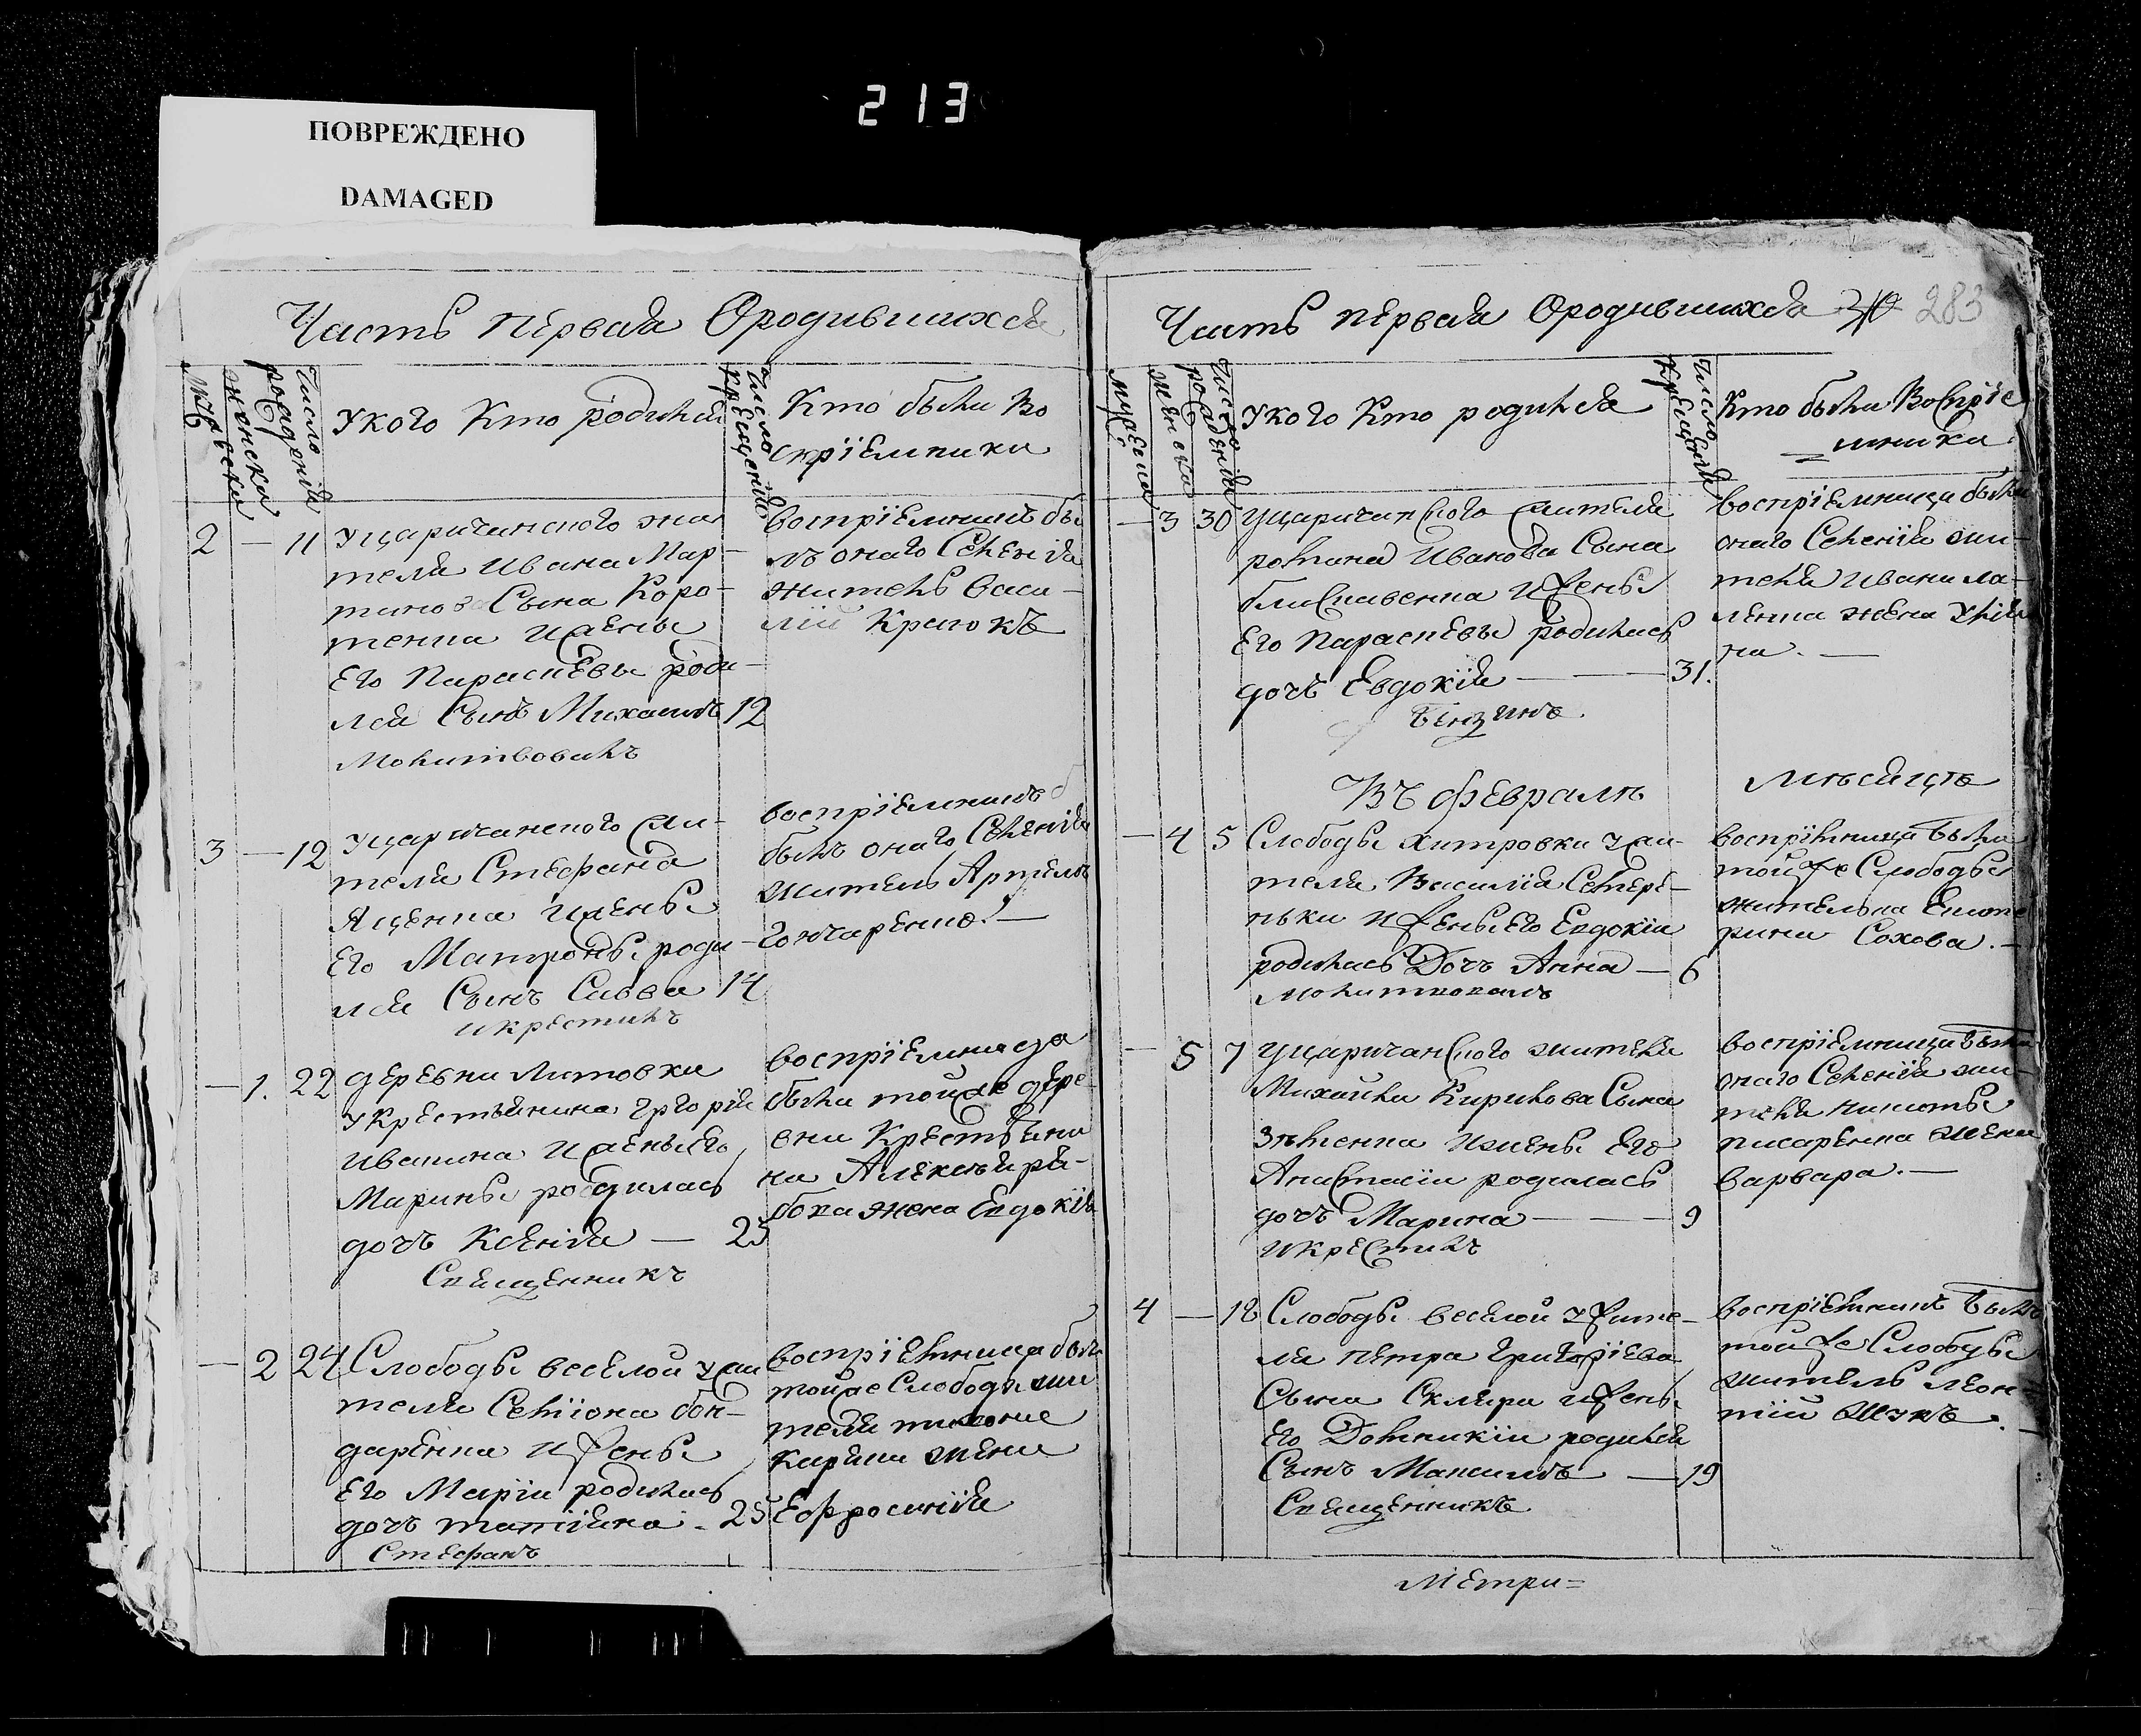 213
ПОВРЕЖДЕНО
DAMAGED
Часть первая Ородившихся
Мужеска
женска
Число рождений
Укого Кто родился
Число крещений
Кто были Во
спріемники
2 — 11 Уцаричанского жи
теля Ивана Мар-
тинова Сына Коро-
тенка ижены
Его Параскевы роди-
лся Сынъ Михаилъ 12
Молитвовалъ
воспріемникъ бы
лъ онаго Селенія
житель Васи-
лій
3 — 12 Уцаричанского жи-
теля Стефана
Яценка ижены
Его Матроны роди-
лся Сынъ Савва 14
икрестилъ
воспріемникъ
былъ онаго Селенія
житель Артемъ
Гончаренко. —
— 1. 22 деревни Литовки
Укрестьянина Григорія
Ивашина ижены Его
Марины родилась
дочъ Ксенія — 25
Священникъ
воспріемница
была тойже дере
вни Крестьяни
на Алексѣя ря-
бока жена Евдокія
— 2 24 Слободы веселой ужи
теля Семіона бон-
даренка ижены
Его Маріи родилась
дочъ татіяна - 25
Стефанъ
воспріемница был
тойже Слободы жи
теля
жена
Ефросинія
Часть первая Ородившихся 283
Мужеска
женска
Число рожденія
Укого Кто родился
Число крещеній
Кто были Воспріе
мники
— 3 30 Уцаричанского жителя
романа Иванова Сына
ижены
Его Параскевы родилась
дочъ Евдокія — 31.
воспріемница была
онаго Селенія жи-
теля Ивана ма-
ленка жена Улія
на. —
Въ февралѣ Мѣсяцѣ
— 4 5 Слободы хитровки ужи-
теля Василія
ижены Его Евдокіи
родилась Дочъ Анна — 6
Молитвовалъ
воспріемница была
тойже Слободы
жителька Екате
рина Сохова. —
— 5 7 Уцаричанского жителя
Михайла Кирилова Сына
ижены Его
Анастасіи родилась
дочъ Марина — 9
икрестилъ
воспріемница была
онаго Селенія жи-
теля никиты
писаренка жена
варвара. —
4 — 18 Слободы веселой ужите-
ля петра григоріева
Сына Скляра ижены
Его Домникіи родился
Сынъ Максимъ — 19
Священникъ
воспріемникъ былъ
тойже Слободы
житель леон-
тій Шукъ. —
Метри=